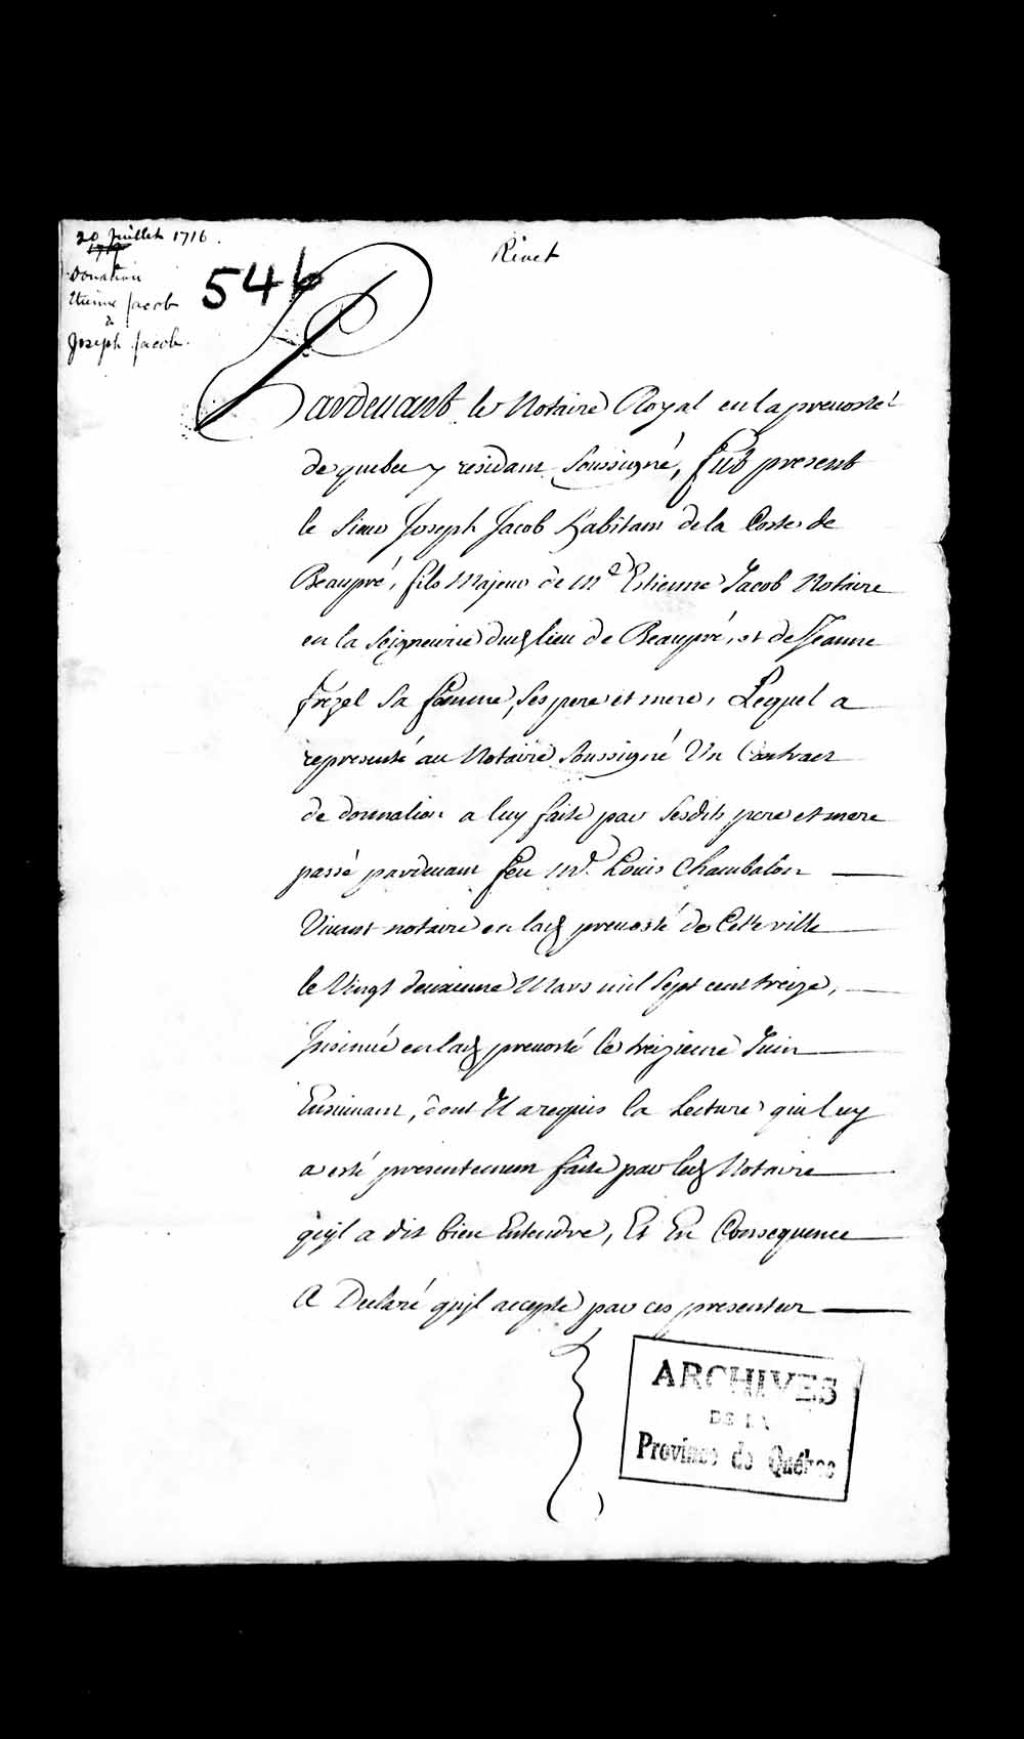 20 Juillet 1716.
1717
Donation
Etienne Jacob
à
Joseph Jacob.
546
Rivet
Pardevant le Notaire Royal en la prevosté
de quebec y residant soussigné, fut present
le sieur Joseph Jacob habitant de la Coste de
Beaupré, fils Majeur de Me Estienne Jacob Notaire
en la seigneurie dud lieu de Beaupré, et de Jeanne
frézel sa femme, ses pere et mere, Lequel a
representé au Notaire soussigné Un Contract
de donnation a luy faite par sesdits pere et mere
passé pardevant feu Me Louis Chambalon
Vivant notaire en lad prevosté de Cette ville
le Vingt deuxieme Mars mil sept cent treize,
Insinué en lad prevosté le treizieme Juin
Ensuivant, dont Il a requis la Lecture qui luy
a esté presentement faite par led Notaire
qu'jl a dit bien Entendre, Et En Consequence
A Declaré qu'jl accepte par ces presentes
ARCHIVES
DE LA
Province de Québec